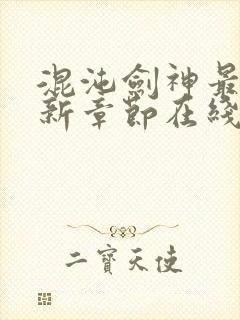 混沌劍神最
新章節在綫
二寶天使